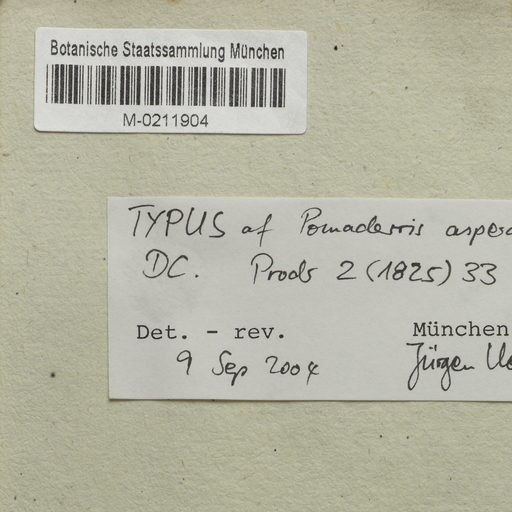 Botanische Staatssammlung München
M-0211904
TYPUS of Pomaderris aspera
DC. Prodr 2 (1825) 33
Det. - rev. München
9 Sep 2004 Jürgen